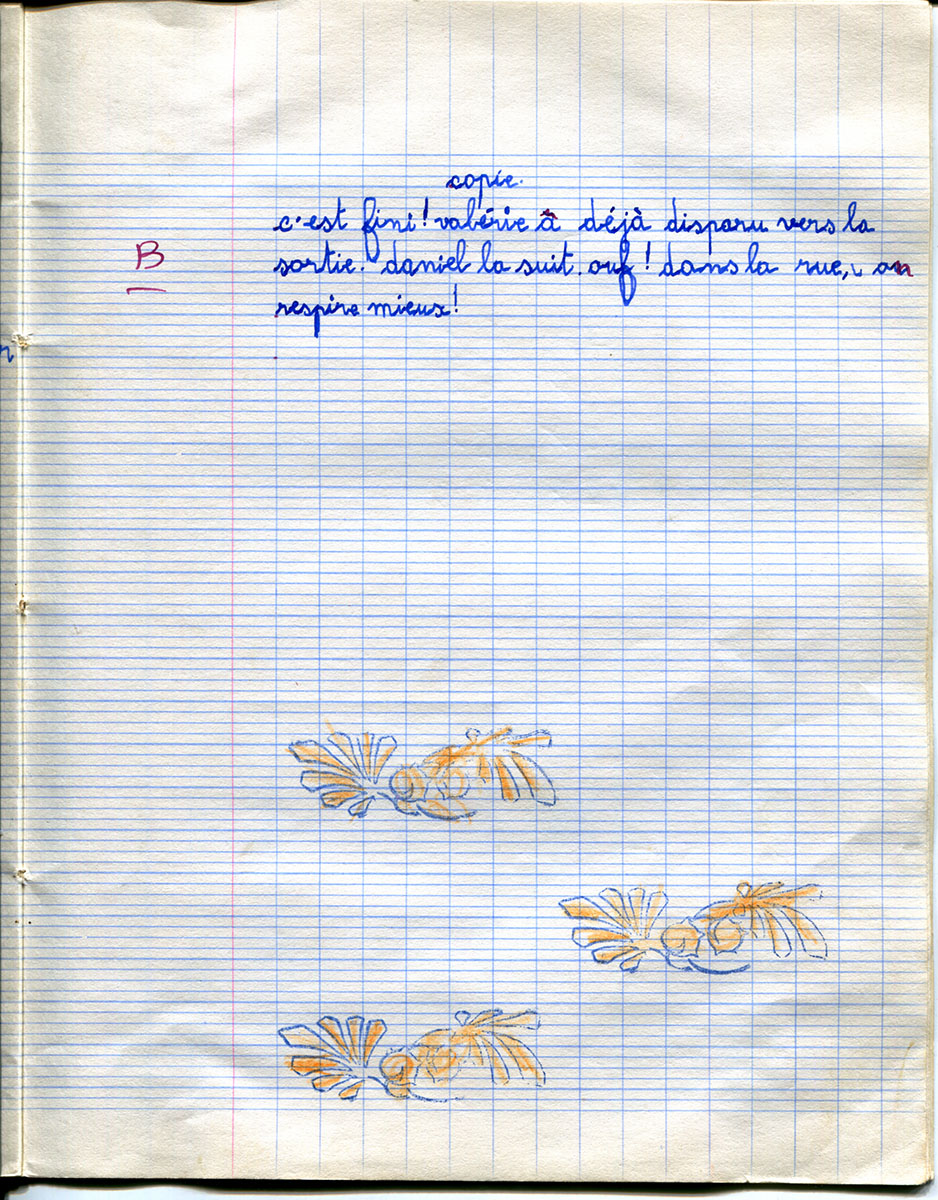 copie.
c'est fini ! valérie â déjà disparu vers la
B
sortie. daniel la suit. ouf ! dans la rue, on
respire mieux !